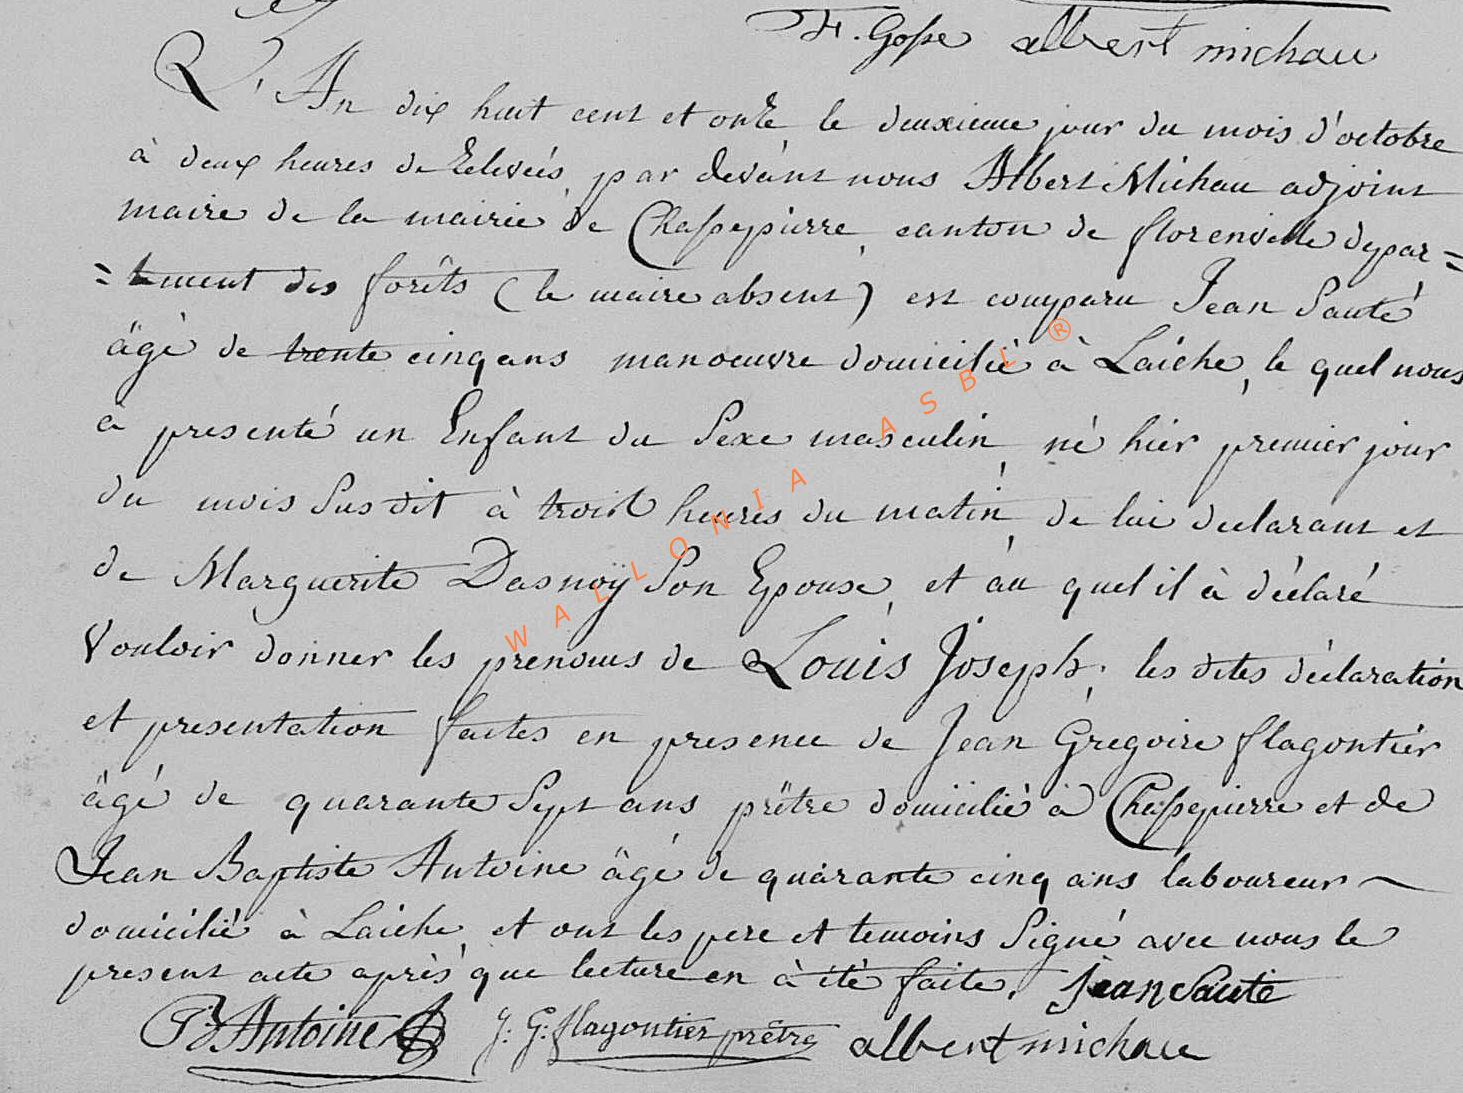 F. Gosse albert michau
L'An dix huit cent et onze le deuxieme jour du mois d'octobre
à deux heures de relevées, par devant nous Albert Michau adjoint
maire de la mairie de Chassepierre, canton de florenville depar=
=tement des forêts (le maire absent) est comparu Jean Sauté
âgé de trente cinq ans manoeuvre domicilié à Laiche, le quel nous
à presenté un Enfant du Sexe masculin, né hier premier jour
du mois Susdit à trois heures du matin de lui declarant et
de Marguerite Dasnoÿ Son Epouse, et au quel il à déclaré
Vouloir donner les prenoms de Louis Joseph; les dites déclaration
et presentation faites en presence de Jean Gregoire flagontier
âgé de quarante Sept ans prêtre domicilié à Chassepierre et de
Jean Baptiste Antoine âgé de quarante cinq ans laboureur
domicilié à Laiche et ont les pere et temoins Signé avec nous le
present acte après que lecture en à été faite. jean Sauté
Antoine J: G: flagontier prêtre albert michau
WALLONIA ASBL ®